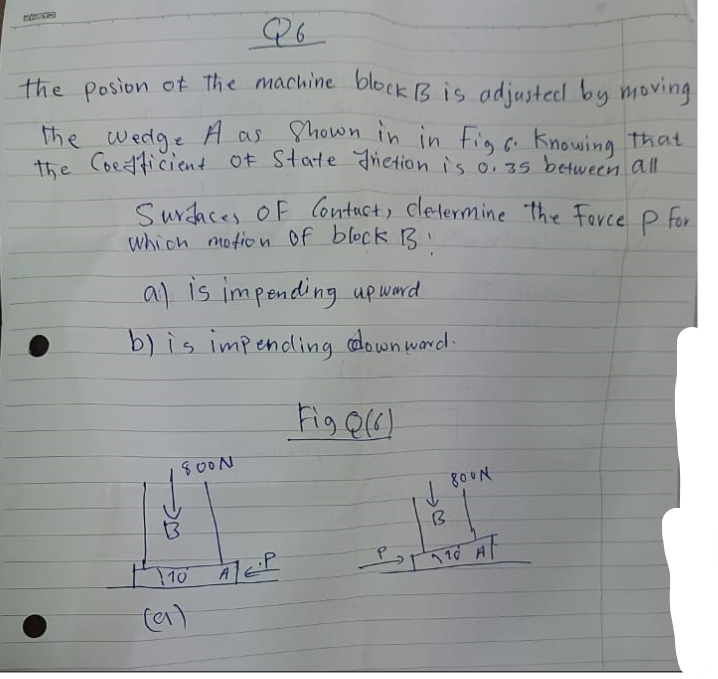 Q6
the posion of The machine block B is adjusted by moving
The wedge A as Shown in in Fig 6. Knowing that
the Coefficient Of State friction is 0.35 between all
Surfaces OF Contact, determine the Force P for
which motion of block B:
a) is impending upward
b) is impending downward.
Fig Q(6)
800N
B
10° A P
(a)
800N
B
P 10° A